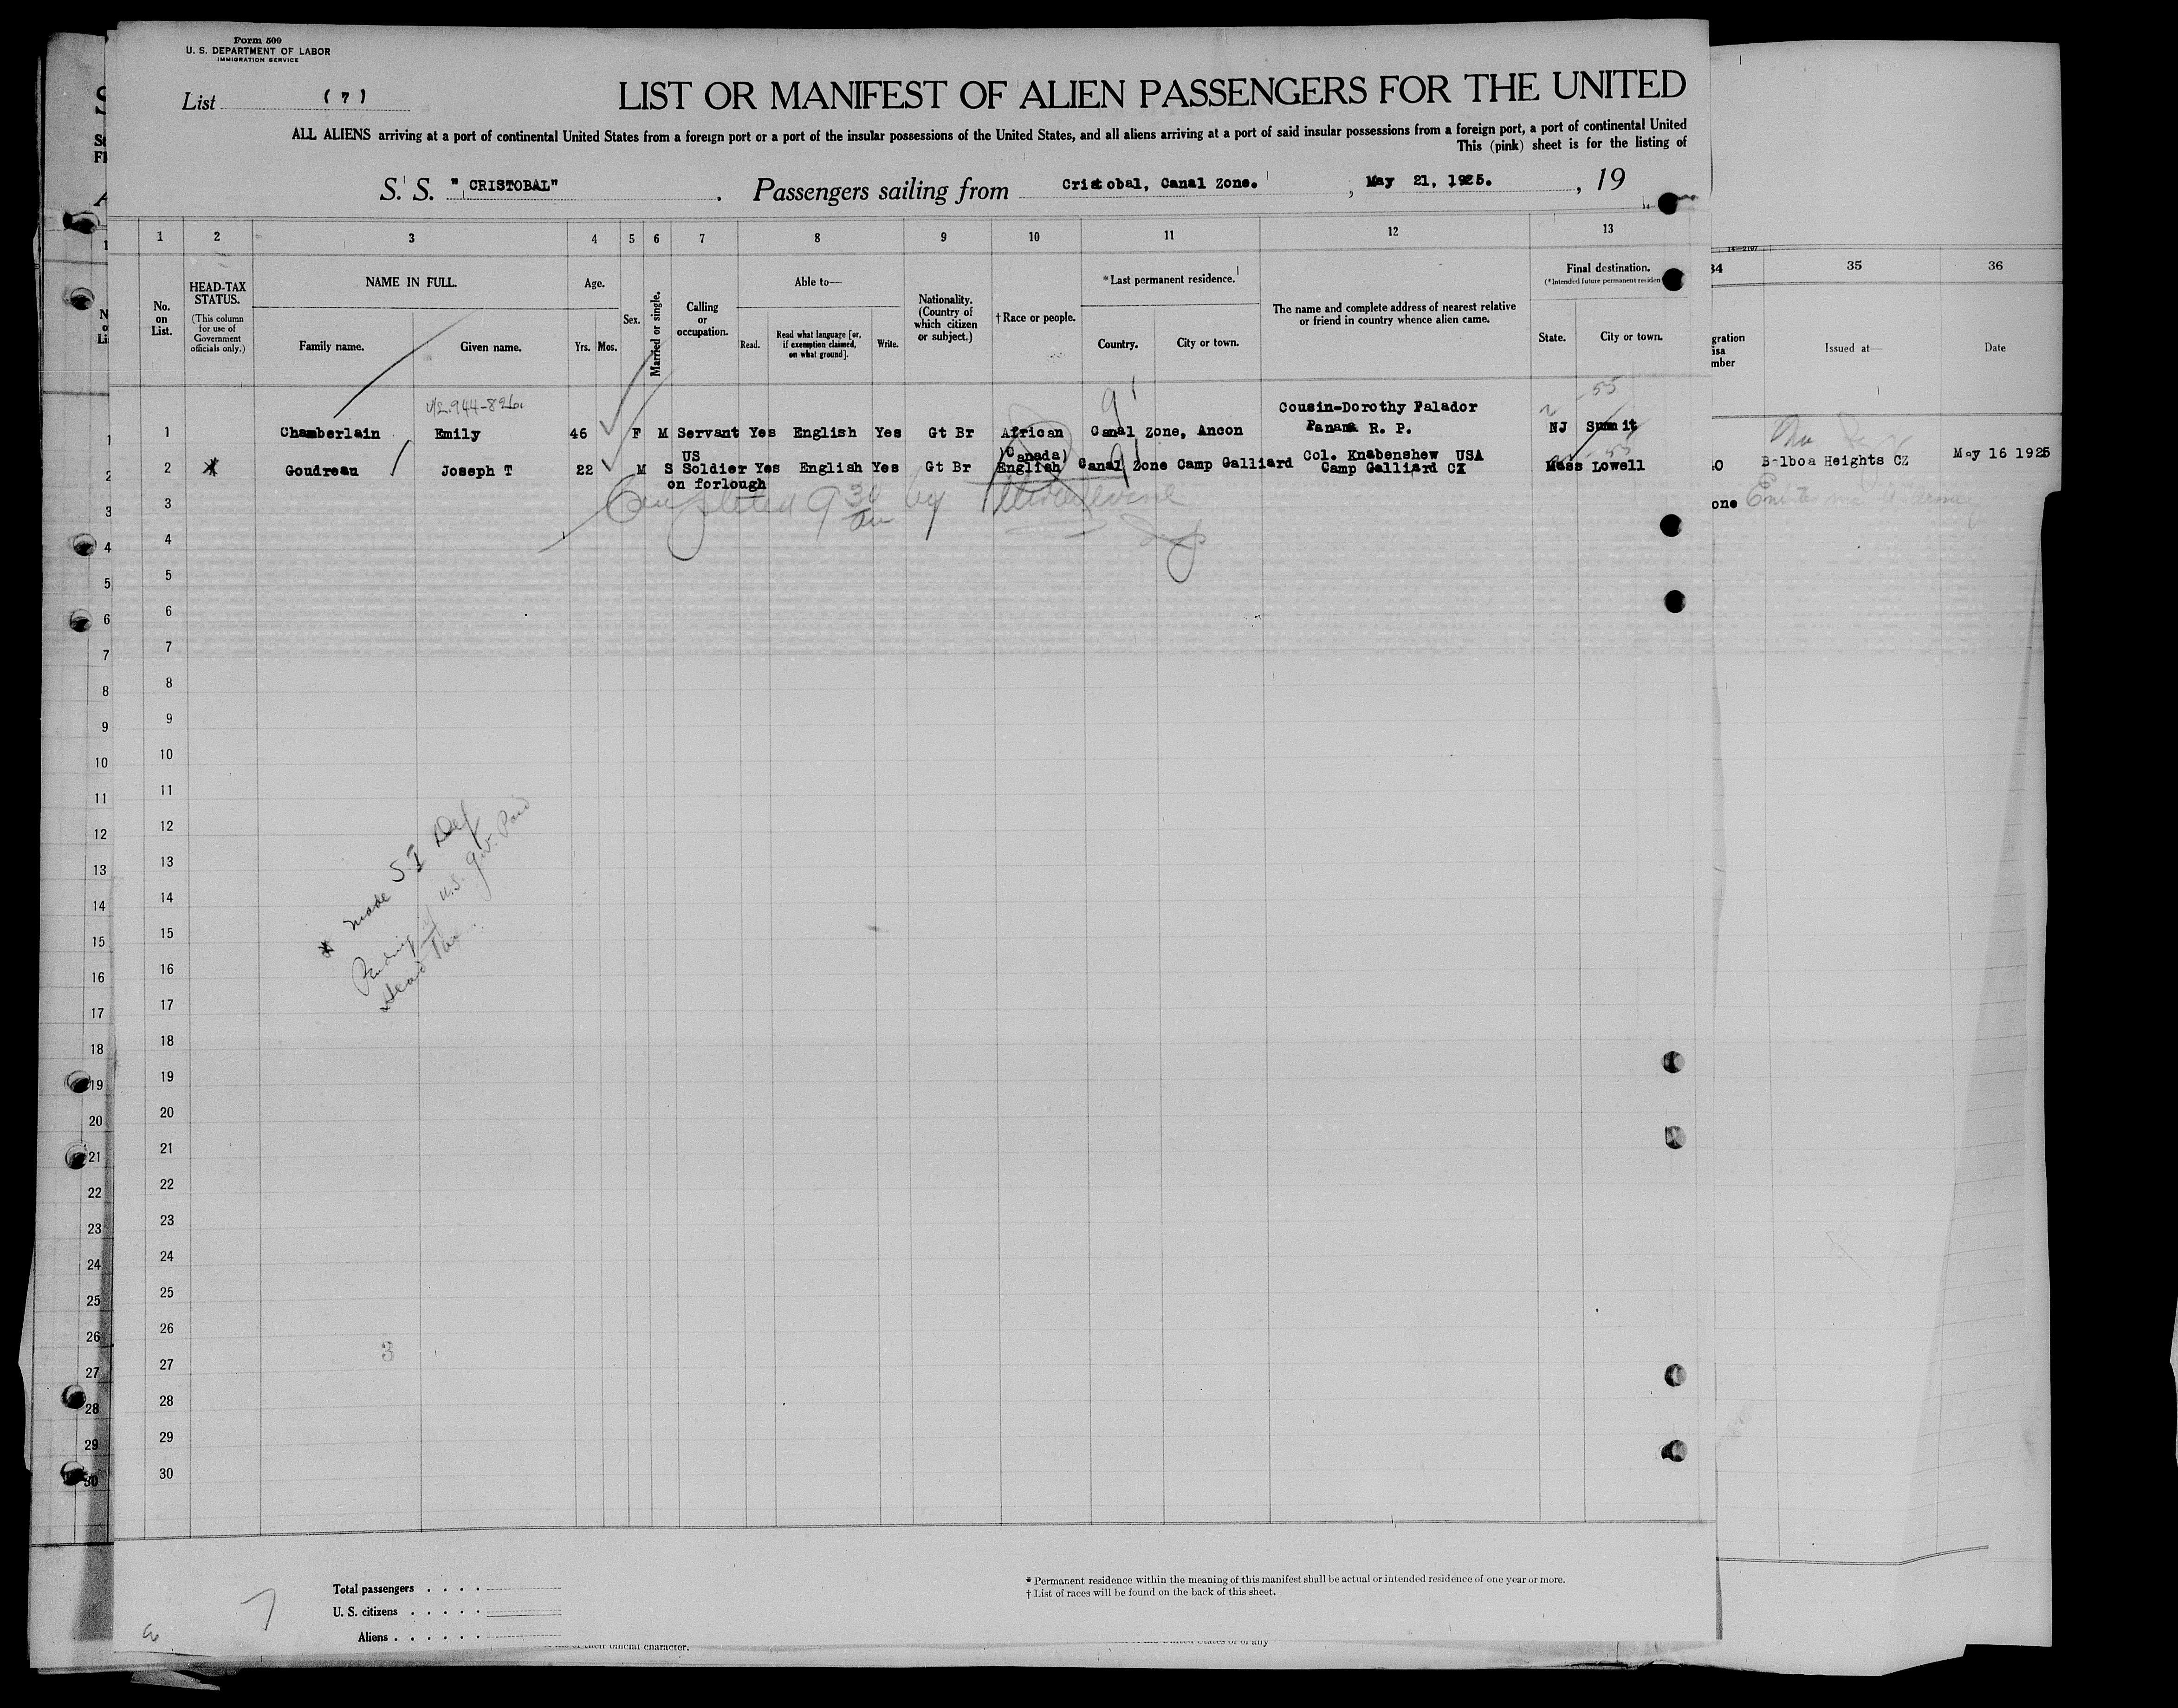 Form 500
U. S. DEPARTMENT OF LABOR
IMMIGRATION SERVICE
List (7)
LIST OR MANIFEST OF ALIEN PASSENGERS FOR THE UNITED
ALL ALIENS arriving at a port of continental United States from a foreign port or a port of the insular possessions of the United States, and all aliens arriving at a port of said insular possessions from a foreign port, a port of continental United
This (pink) sheet is for the listing of
S. S. "CRISTOBAL" . Passengers sailing from Cristobal, Canal Zone. , May 21, 1925. , 19
1 2 3 4 5 6 7 8 9 10 11 12 13
No. on List.
HEAD-TAX STATUS.
(This column for use of Government officials only.)
NAME IN FULL.
Family name. Given name.
Age.
Yrs. Mos.
Sex.
Married or single.
Calling or occupation.
Able to—
Read. Read what language [or, if exemption claimed, on what ground]. Write.
Nationality. (Country of which citizen or subject.)
†Race or people.
*Last permanent residence.
Country. City or town.
The name and complete address of nearest relative or friend in country whence alien came.
Final destination.
(*Intended future permanent residen
State. City or town.
34 35 36
gration
isa
mber
Issued at—
Date
Cousin-Dorothy Palador
1 Chamberlain Emily 46 F M Servant Yes English Yes Gt Br African Canal Zone, Ancon Panama R. P. NJ Summit
US (Canada) Col. Knabenshew USA
2 Goudreau Joseph T 22 M S Soldier Yes English Yes Gt Br English Canal Zone Camp Galliard Camp Galliard CZ Mass Lowell
on forlough
40 Balboa Heights CZ May 16 1925
one Enlisted man US Army
Completed 9 30 am by
Insp
3
4
5
6
7
8
9
10
11
12
13
14
15
16
17
18
19
20
21
22
23
24
25
26
27
28
29
30
* made S.I Def
Pending U.S. gov. Paid
Head Tax
3
7
Total passengers . . . .
U. S. citizens . . . . .
Aliens . . . . . .
* Permanent residence within the meaning of this manifest shall be actual or intended residence of one year or more.
† List of races will be found on the back of this sheet.